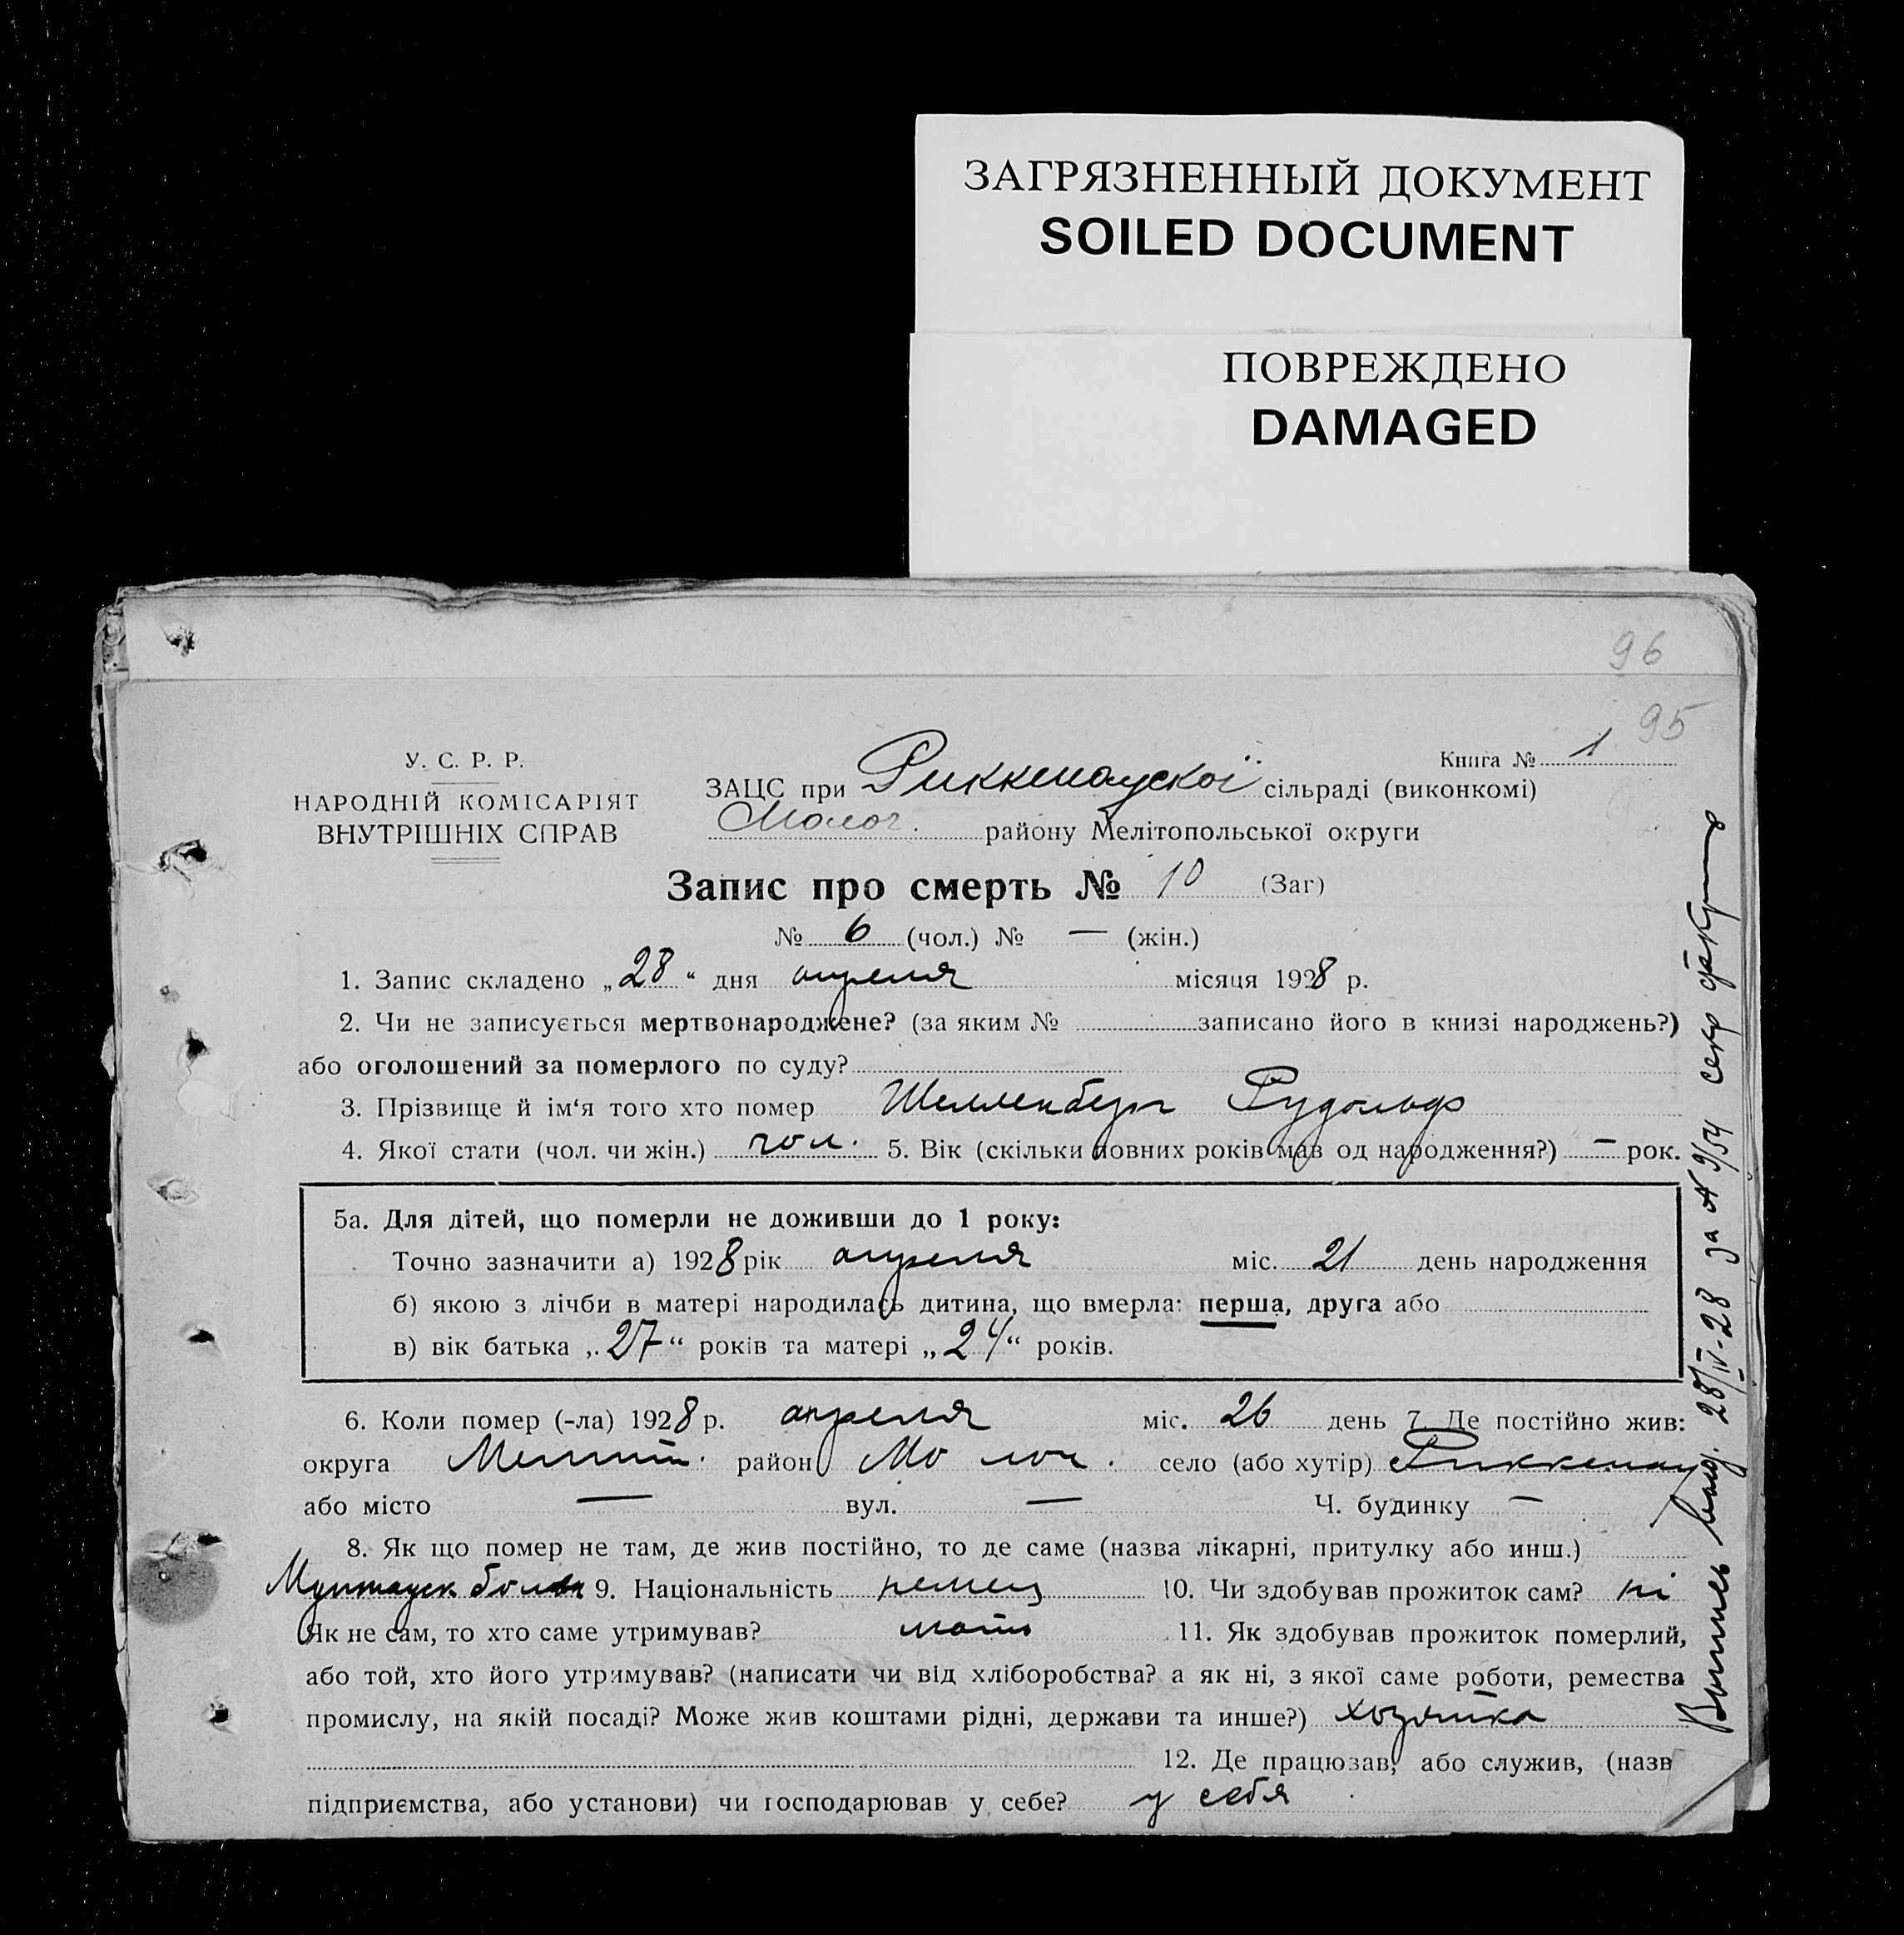 ЗАГРЯЗНЕННЫЙ ДОКУМЕНТ
SOILED DOCUMENT
ПОВРЕЖДЕНО
DAMAGED
96
95
У. С. Р. Р.
НАРОДНІЙ КОМІСАРІЯТ
ВНУТРІШНІХ СПРАВ
Книга № 1
ЗАЦС при Риккенауской сільраді (виконкомі)
Молоч. району Мелітопольської округи
Запис про смерть № 10 (Заг)
№ 6 (чол.) № — (жін.)
1. Запис складено „28“ дня апреля місяця 1928 р.
2. Чи не записується мертвонароджене? (за яким № записано його в книзі народжень?)
або оголошений за померлого по суду?
3. Прізвище й ім‘я того хто помер Шелленберг Рудольф
4. Якої стати (чол. чи жін.) чол. 5. Вік (скільки повних років мав од народження?) — рок.
5а. Для дітей, що померли не доживши до 1 року:
Точно зазначити а) 1928 рік апреля міс. 21 день народження
б) якою з лічби в матері народилась дитина, що вмерла: перша, друга або
в) вік батька „27“ років та матері „24“ років.
6. Коли помер (-ла) 1928 р. апреля міс. 26 день 7. Де постійно жив:
округа Мелит. район Молоч. село (або хутір) Риккенау
або місто — вул. — Ч. будинку —
8. Як що помер не там, де жив постійно, то де саме (назва лікарні, притулку або инш.)
Мунтауск. больн 9. Національність немец 10. Чи здобував прожиток сам? ні
Як не сам, то хто саме утримував? мать 11. Як здобував прожиток померлий,
або той, хто його утримував? (написати чи від хліборобства? а як ні, з якої саме роботи, ремества
промислу, на якій посаді? Може жив коштами рідні, держави та инше?) хозяйка
12. Де працював, або служив, (назв
підприємства, або установи) чи господарював у себе? у себя
28/IV-28 за № 9/54 секр